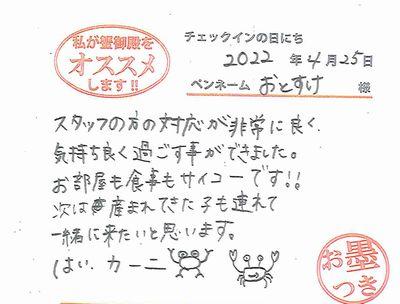 私が蟹御殿を
オススメ
します!!
チェックインの日にち
2022 年 4 月 25 日
ペンネーム おとすけ 様
スタッフの方の対応が非常に良く、
気持ち良く過ごす事ができました。
お部屋も食事もサイコーです!!
次は産まれてきた子も連れて
一緒に来たいと思います。
はい、カーニ
お墨
つき